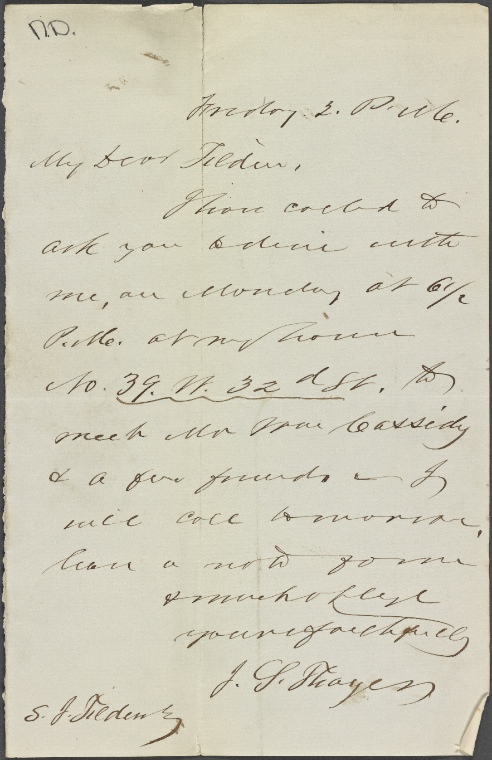 N.D.
Friday 2. P.M.
My Dear Tilden,
I have called to
ask you to dine with
me, on Monday at 6 1/2
P.M. at my house
No. 39. W. 32d St. to
meet Mr Wm Cassidy
& a few friends - I
will call tomorrow,
leave a note for me
& much oblige
yours faithfully
J. S. Thayer
S. J. Tilden